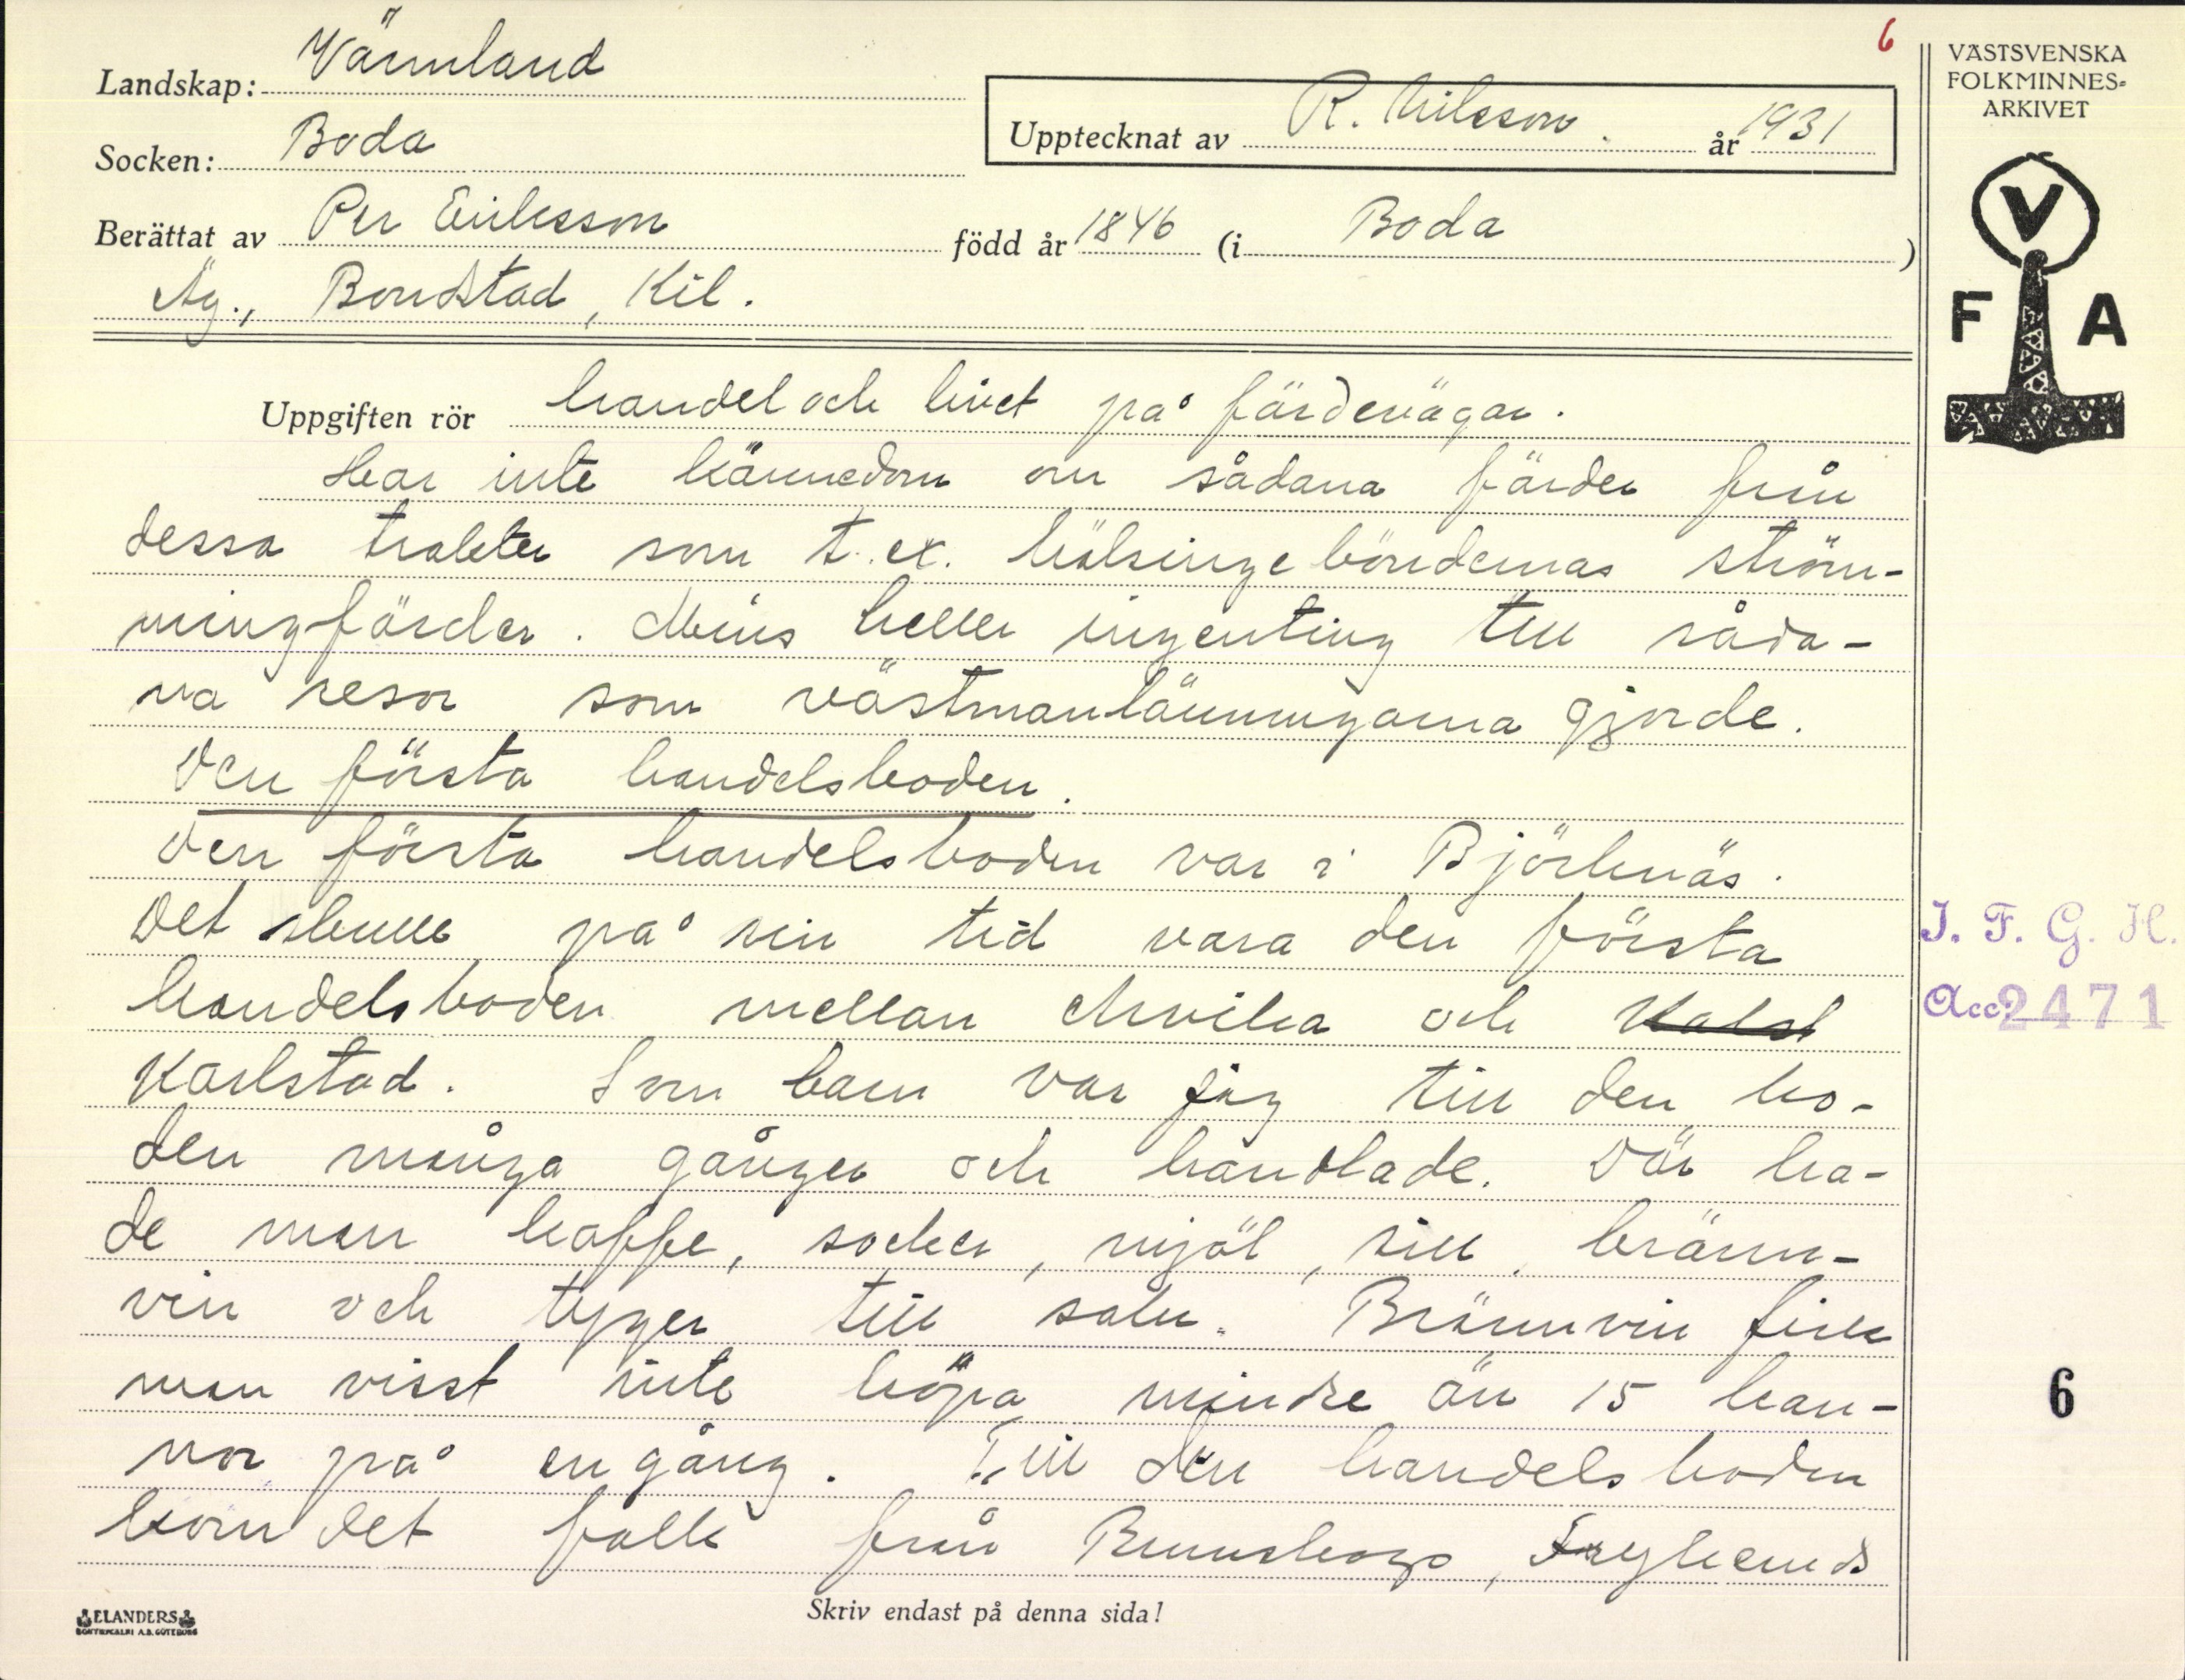 6
VÄSTSVENSKA
FOLKMINNES-
ARKIVET
V
F A
Landskap: Värmland
Upptecknat av R. Nilsson. år 1931
Socken: Boda
Berättat av Per Eriksson född år 1846 (i Boda)
Äg., Bondstad, Kil.
Uppgiften rör handel och livet på färdevägar.
Har inte kännedom om sådana färder från
dessa trakter som t. ex. hälsingeböndernas ström-
mingfärder. Mins heller ingenting till såda-
na resor som västmanlänningarna gjorde.
Den första handelsboden.
Den första handelsboden var i Björknäs.
Det skulle på sin tid vara den första
handelsboden mellan Arvika och Kalst
Karlstad. Som barn var jag till den bo-
den många gånger och handlade. Där ha-
de man kaffe, socker, mjöl, sill, bränn-
vin och tyger till salu. Brännvin fick
man visst inte köpa mindre än 15 kan-
nor på en gång. Till den handelsboden
kom det folk från Brunskogs, Frykeruds
I. F. G. H.
Acc. 2471
6
ELANDERS
BOKTRYCKERI A.B. GÖTEBORG
Skriv endast på denna sida!